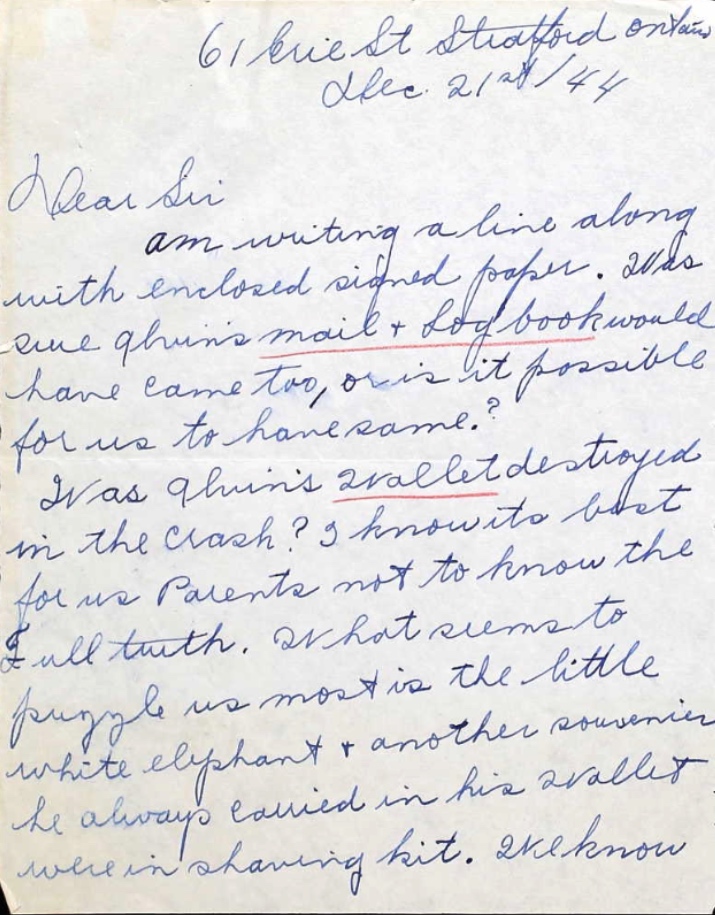 61 Erie St Stratford Ontario
Dec. 21st/44
Dear Sir
am writing a line along
with enclosed signed paper. Was
sure mail & Log book would
have came too, or is it possible
for us to have same.?
Was wallet destroyed
in the crash? I know its best
for us Parents not to know the
Full truth. What seems to
puzzle us most is the little
white elephant & another souvenier
he always carried in his wallet
were in shaving kit. We know